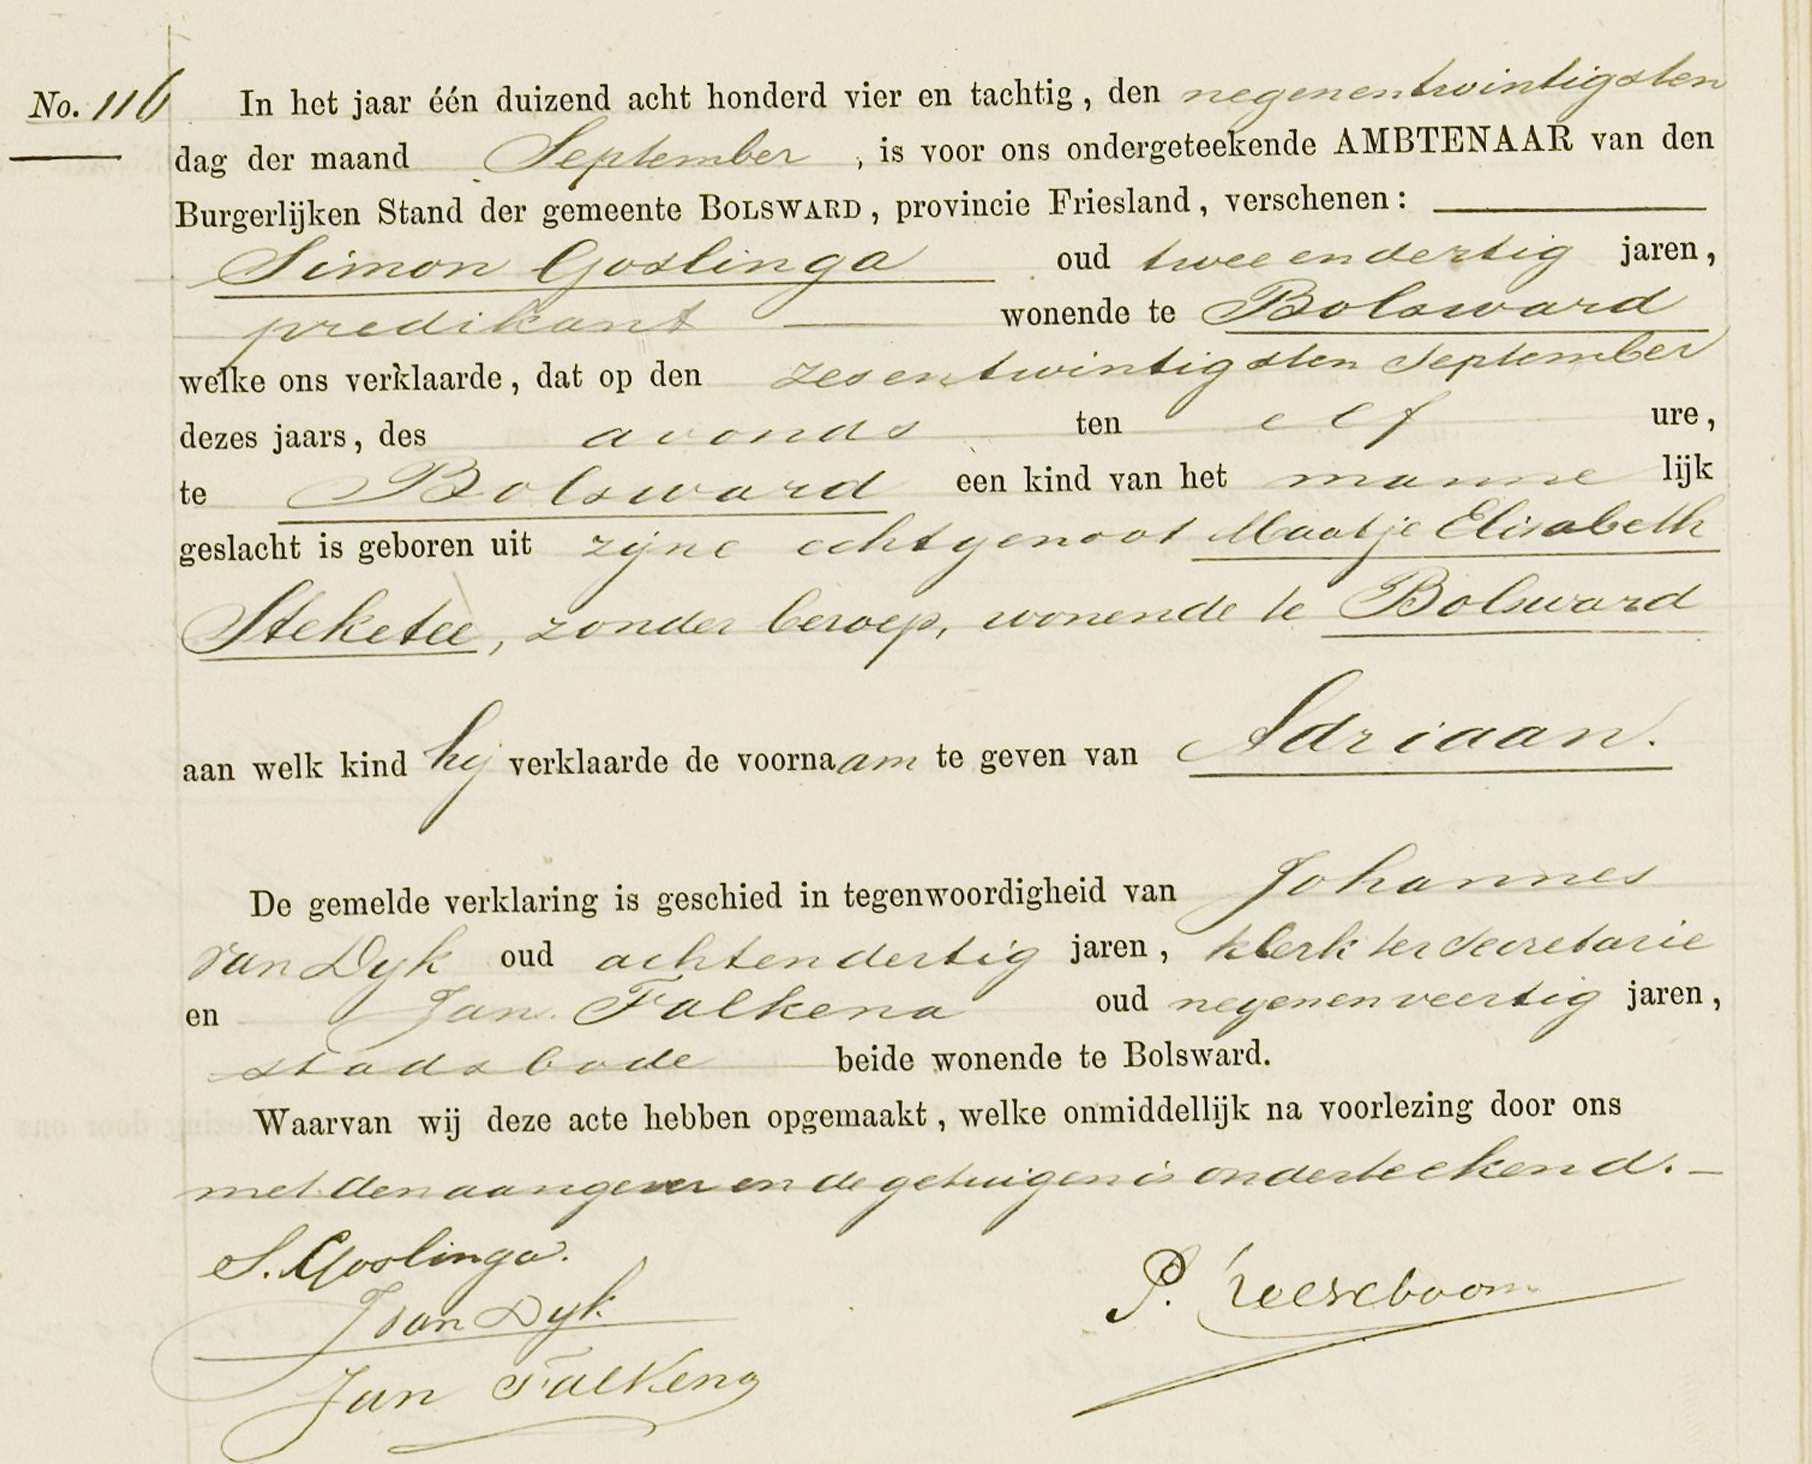 No. 116 In het jaar één duizend acht honderd vier en tachtig, den negenentwintigsten
dag der maand September, is voor ons ondergeteekende AMBTENAAR van den
Burgerlijken Stand der gemeente BOLSWARD, provincie Friesland, verschenen:
Simon Goslinga oud twee en dertig jaren,
predikant wonende te Bolsward
welke ons verklaarde, dat op den zesentwintigsten September
dezes jaars, des avonds ten elf ure,
te Bolsward een kind van het manne lijk
geslacht is geboren uit zijne echtgenoot Maatje Elisabeth
Steketee, zonder beroep, wonende te Bolsward
aan welk kind hij verklaarde de voornaam te geven van Adriaan.
De gemelde verklaring is geschied in tegenwoordigheid van Johannes
van Dyk oud achtendertig jaren, klerk ter secretarie
en Jan Falkena oud negenenveertig jaren,
stadsbode beide wonende te Bolsward.
Waarvan wij deze acte hebben opgemaakt, welke onmiddellijk na voorlezing door ons
met den aangever en de getuigen is onderteekend.
S. Goslinga.
J van Dyk
Jan Falkena
P.